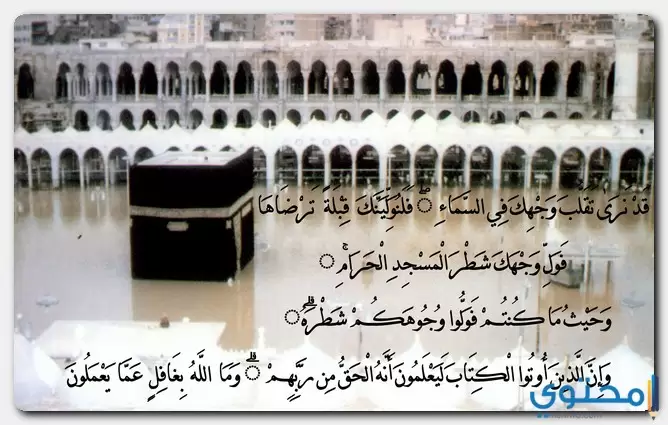 قَدْ نَرَىٰ تَقَلُّبَ وَجْهِكَ فِي السَّمَاءِ ۖ فَلَنُوَلِّيَنَّكَ قِبْلَةً تَرْضَاهَا
فَوَلِّ وَجْهَكَ شَطْرَ الْمَسْجِدِ الْحَرَامِ ۚ
وَحَيْثُ مَا كُنْتُمْ فَوَلُّوا وُجُوهَكُمْ شَطْرَهُ ۗ
وَإِنَّ الَّذِينَ أُوتُوا الْكِتَابَ لَيَعْلَمُونَ أَنَّهُ الْحَقُّ مِنْ رَبِّهِمْ ۗ وَمَا اللَّهُ بِغَافِلٍ عَمَّا يَعْمَلُونَ
محتوى